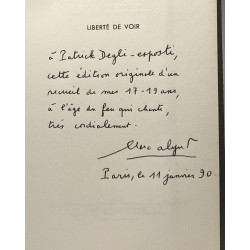 LIBERTÉ DE VOIR
à Patrick Degli-esposti,
cette édition originale d'un
recueil de mes 17-19 ans,
à l'âge du feu qui chante,
très cordialement.
Marc Alyn
Paris, le 11 janvier 90.